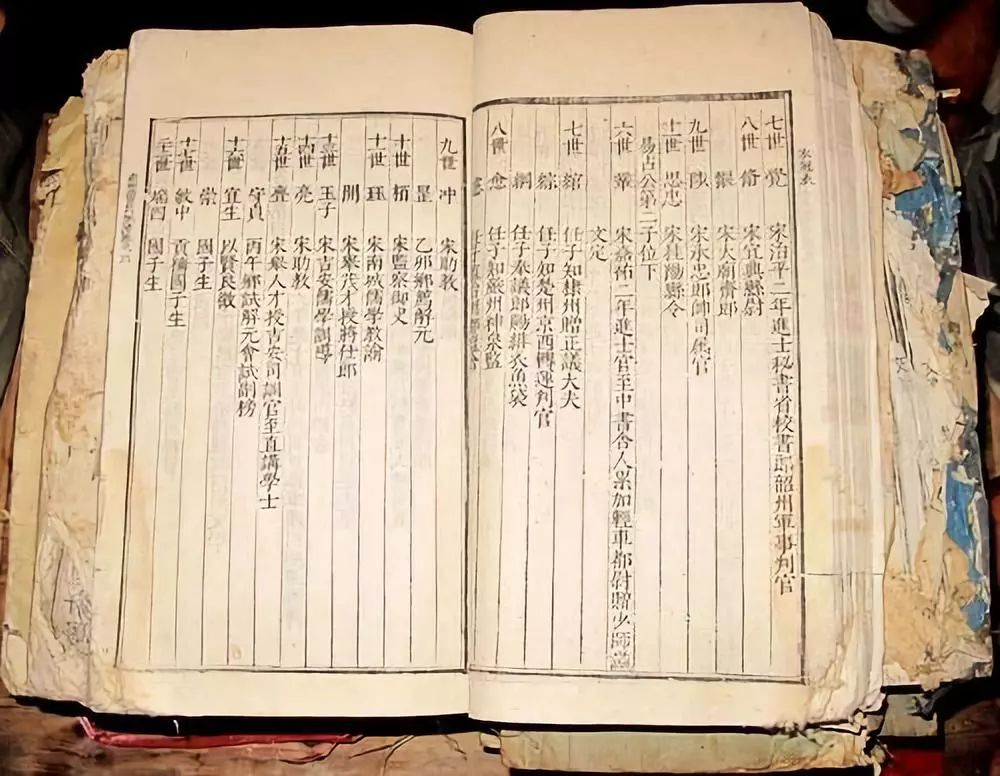 七世 覺 宋治平二年進士秘書省校書郎韶州軍事判官
八世 宋宜興縣尉
宋太廟齋郎
九世 陟 宋承忠郎帥司僉官
十一世 思忠 宋桂陽縣令
易占公第二子位下
六世 鞏 宋嘉祐二年進士官至中書舍人累加輕車都尉贈少師謚
文定
七世 綰 任子知隸州贈正議大夫
綜 任子知楚州京西轉運判官
綱 任子奉議郎賜緋衣魚袋
八世 悆 任子知嚴州神泉監
九世 冲 宋助教
乙卯鄉薦解元
十世 栢 宋監察御史
十一世 珏 宋南城儒學教諭
宋舉茂才授將仕郎
十三世 玉子 宋吉安儒學訓導
十四世 亮 宋助教
十五世 宋舉人才授吉安司訓官至直講學士
守貞 丙午鄉試解元會試副榜
十六世 宜生 以賢良徵
崇 國子生
敏中 貢儕國子生
國子生